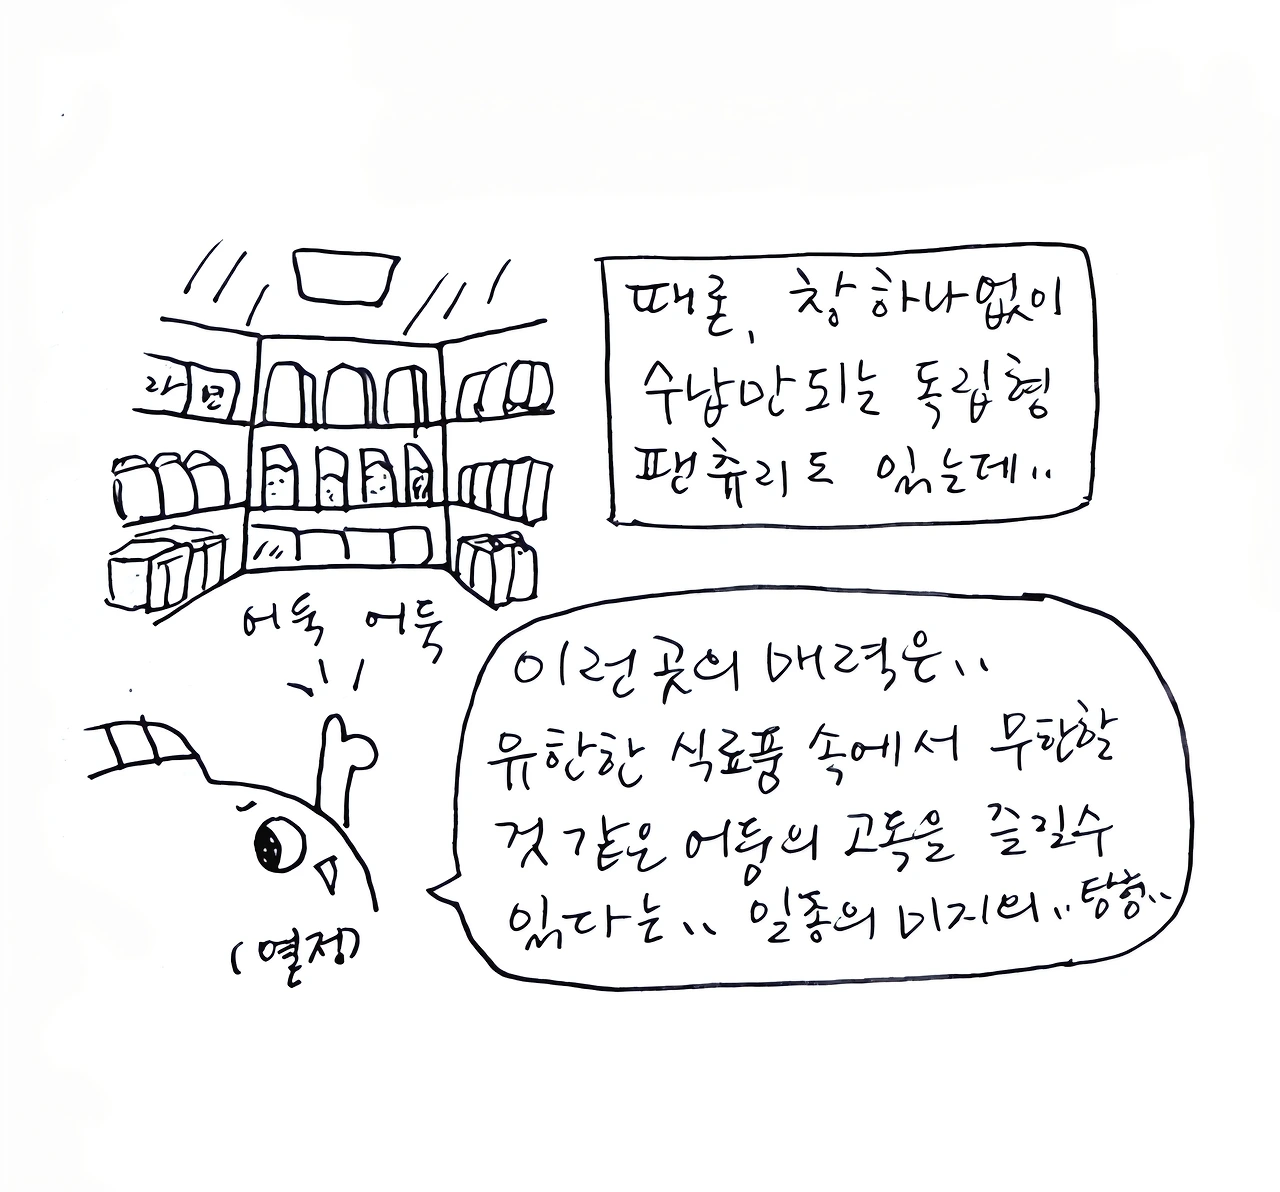 때론, 창 하나없이
수납만 되는 독립형
팬츄리도 있는데..
라면
어둑 어둑
이런 곳의 매력은..
유한한 식료품 속에서 무한할
것 같은 어둠의 고독을 즐길수
있다는.. 일종의 미지의.. 탐험..
(열정)